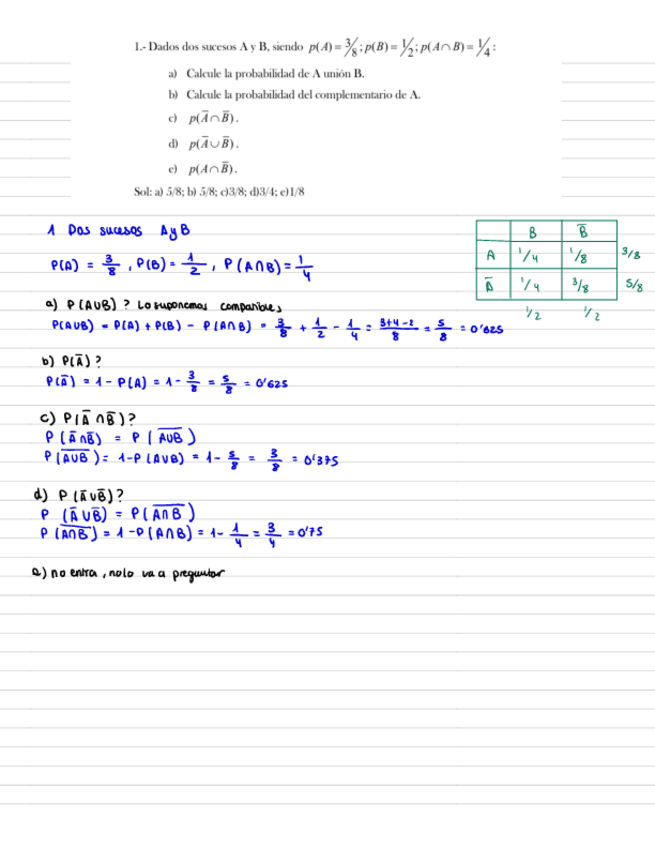 1.- Dados dos sucesos A y B, siendo p(A) = 3/8; p(B) = 1/2; p(A∩B) = 1/4:
a) Calcule la probabilidad de A unión B.
b) Calcule la probabilidad del complementario de A.
c) p(A̅∩B̅).
d) p(A̅∪B̅).
e) p(A∩B̅).
Sol: a) 5/8; b) 5/8; c)3/8; d)3/4; e)1/8
1 Dos sucesos A y B
P(A) = 3/8, P(B) = 1/2, P(A∩B) = 1/4
B B̅
A 1/4 1/8 3/8
A̅ 1/4 3/8 5/8
1/2 1/2
a) P(A∪B)? Lo suponemos compatibles
P(A∪B) = P(A) + P(B) - P(A∩B) = 3/8 + 1/2 - 1/4 = 3+4-2/8 = 5/8 = 0'625
b) P(A̅)?
P(A̅) = 1 - P(A) = 1 - 3/8 = 5/8 = 0'625
c) P(A̅∩B̅)?
P(A̅∩B̅) = P(A̅∪̅B̅)
P(A̅∪̅B̅) = 1-P(A∪B) = 1 - 5/8 = 3/8 = 0'375
d) P(A̅∪B̅)?
P(A̅∪B̅) = P(A̅∩̅B̅)
P(A̅∩̅B̅) = 1-P(A∩B) = 1 - 1/4 = 3/4 = 0'75
e) no entra, no lo va a preguntar